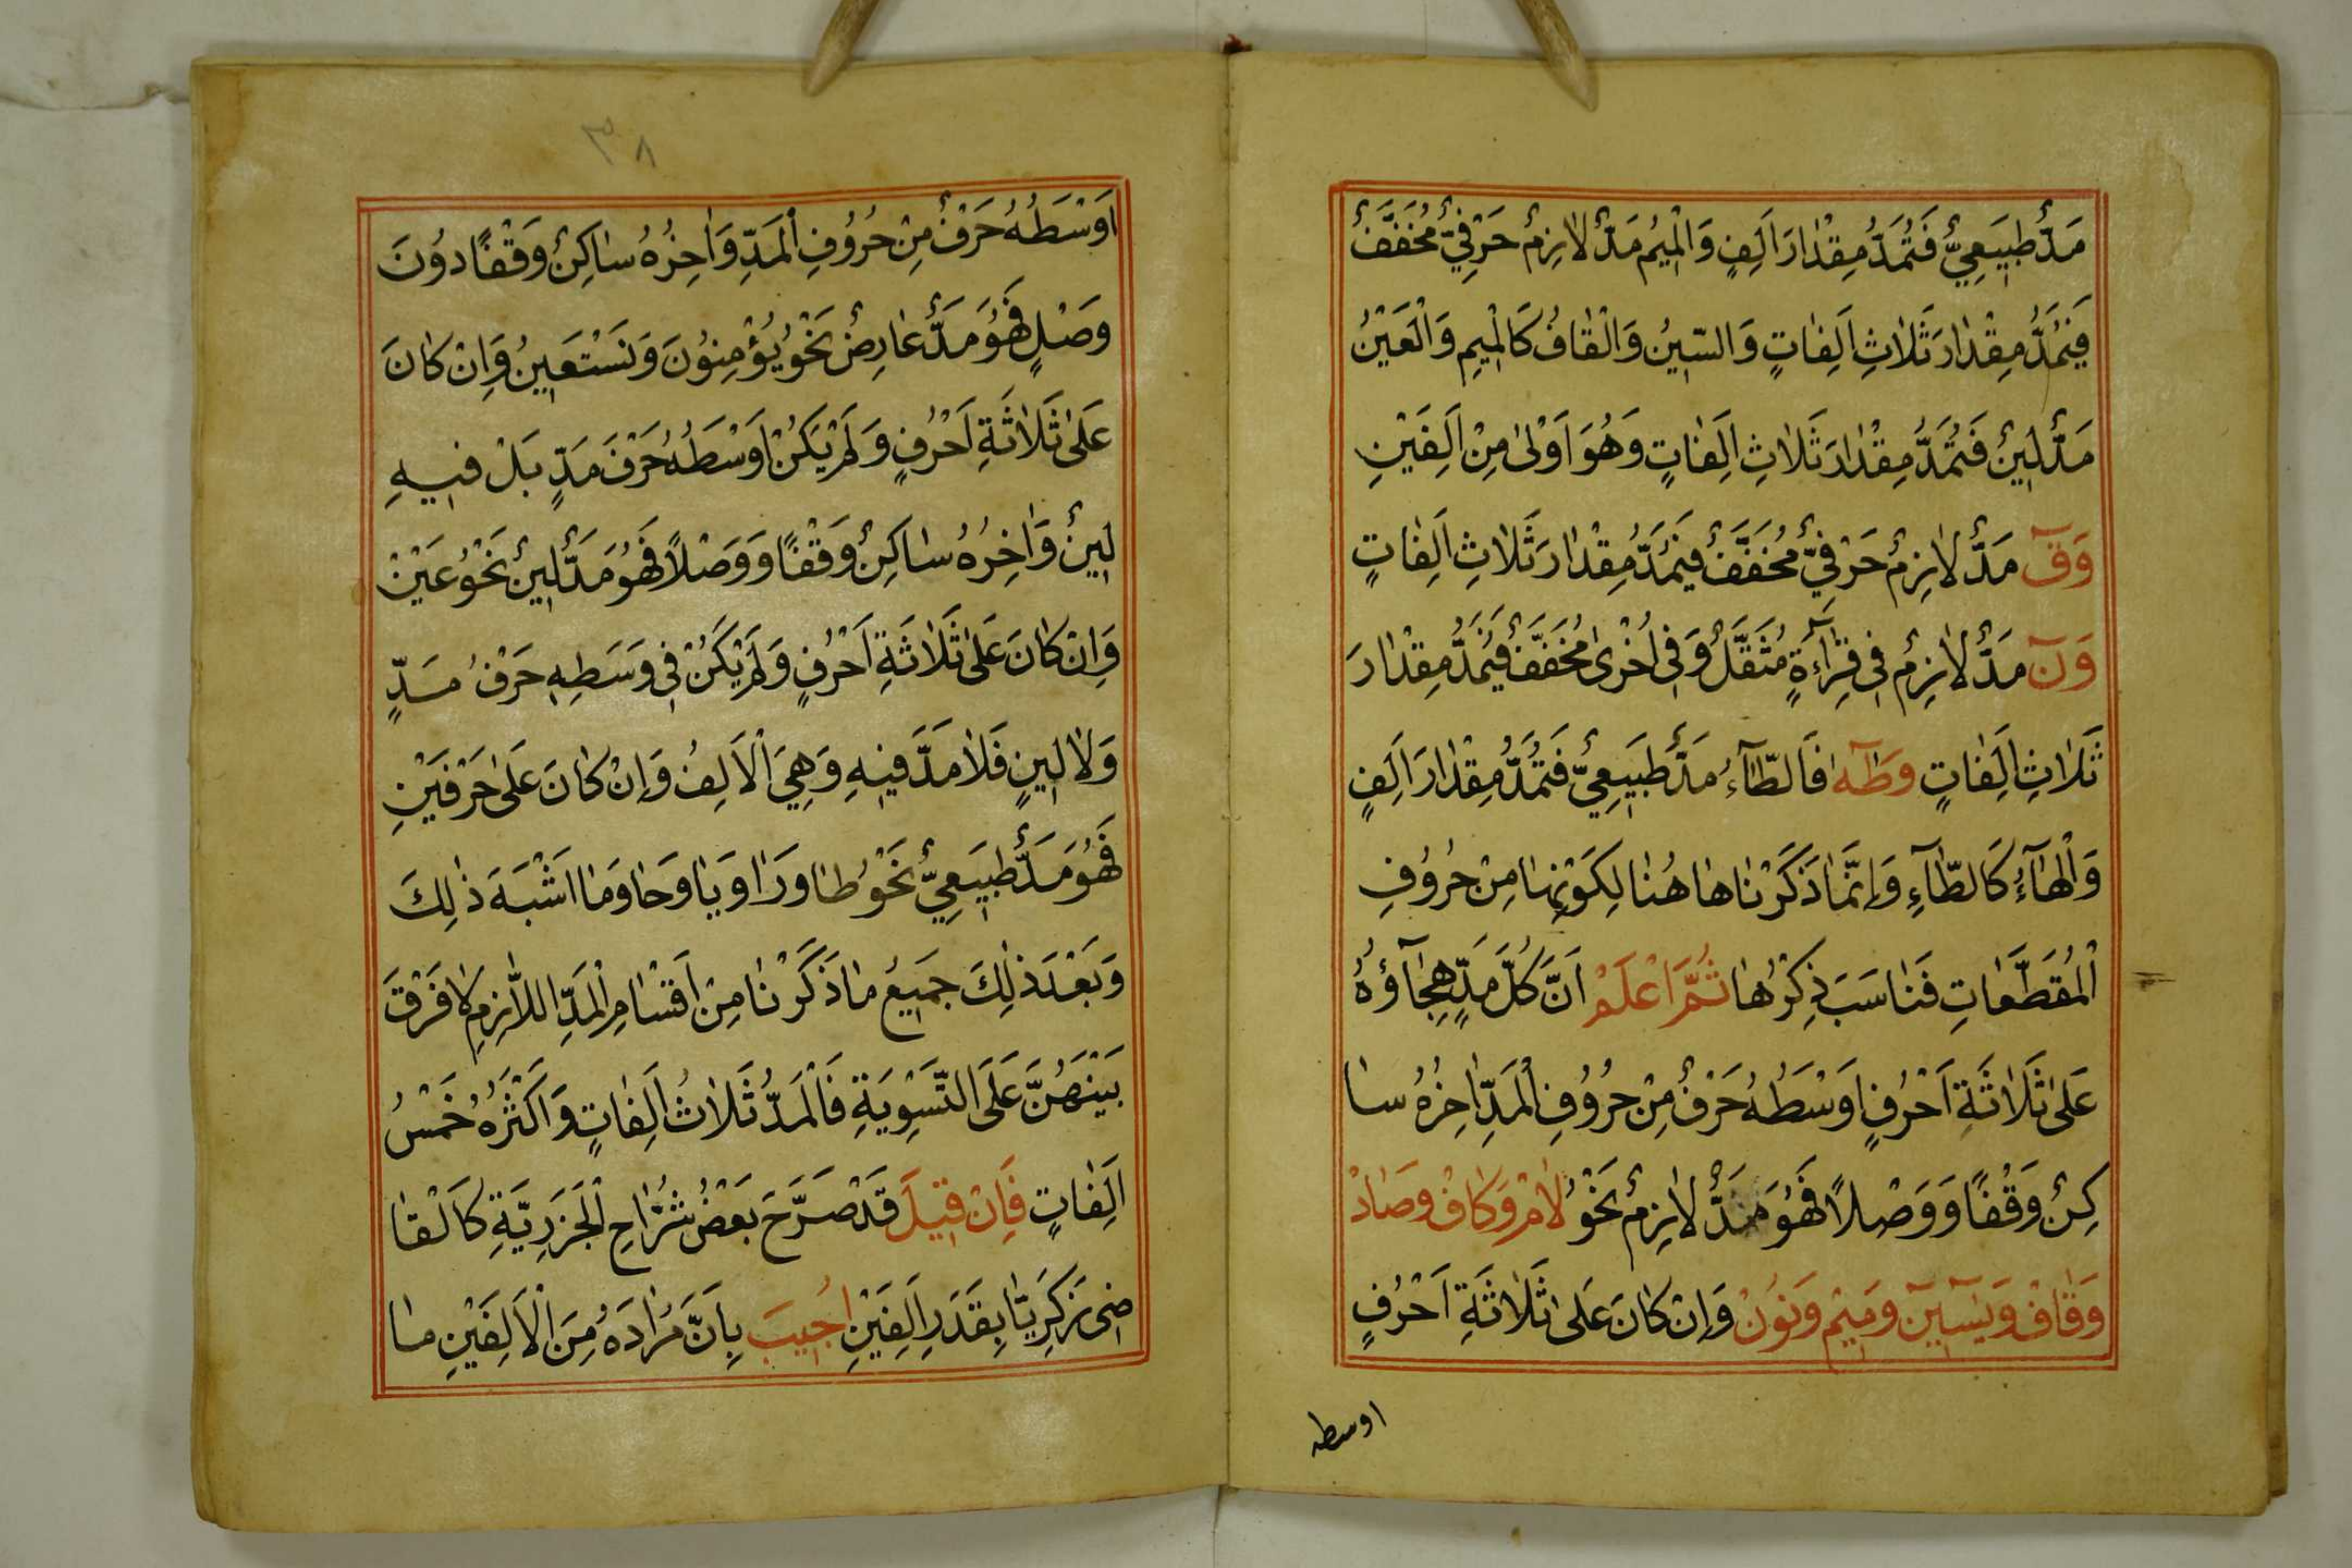 مَدٌّ طَبِيعِيٌّ فَتُمَدُّ مِقْدَارَ اَلِفٍ وَالْمِيمُ مَدٌّ لَازِمٌ حَرْفِيٌّ مُخَفَّفٌ
فَيُمَدُّ مِقْدَارَ ثَلَاثِ اَلِفَاتٍ وَالسِّينُ وَالْقَافُ كَالْمِيمِ وَالْعَيْنُ
مَدُّ لِينٌ فَتُمَدُّ مِقْدَارَ ثَلَاثِ اَلِفَاتٍ وَهُوَ اَوْلٰى مِنْ اَلِفَيْنِ
وَقٓ مَدٌّ لَازِمٌ حَرْفِيٌّ مُخَفَّفٌ فَيُمَدُّ مِقْدَارَ ثَلَاثِ اَلِفَاتٍ
وَنٓ مَدٌّ لَازِمٌ فِى قِرَآءَةٍ مُثَقَّلٌ وَفِى اُخْرٰى مُخَفَّفٌ فَيُمَدُّ مِقْدَارَ
ثَلَاثِ اَلِفَاتٍ وَطٰهٓ فَالطَّآءُ مَدٌّ طَبِيعِيٌّ فَتُمَدُّ مِقْدَارَ اَلِفٍ
وَالْهَآءُ كَالطَّآءِ وَاِنَّمَا ذَكَرْنَاهَا هُنَا لِكَوْنِهَا مِنْ حُرُوفِ
الْمُقَطَّعَاتِ فَنَاسَبَ ذِكْرُهَا ثُمَّ اعْلَمْ اَنَّ كُلَّ مَدٍّ هِجَآؤُهُ
عَلٰى ثَلَاثَةِ اَحْرُفٍ اَوْسَطُهُ حَرْفٌ مِنْ حُرُوفِ الْمَدِّ اٰخِرُهُ سَا
كِنٌ وَقْفًا وَوَصْلًا فَهُوَ مَدٌّ لَازِمٌ نَحْوُ لَامْ وَكَافْ وَصَادْ
وَقَافْ وَيٰسٓيٓنْ وَمِيمْ وَنُونْ وَاِنْ كَانَ عَلٰى ثَلَاثَةِ اَحْرُفٍ
اوسطه
٣٨
اَوْسَطُهُ حَرْفٌ مِنْ حُرُوفِ الْمَدِّ وَاٰخِرُهُ سَاكِنٌ وَقْفًا دُونَ
وَصْلٍ فَهُوَ مَدٌّ عَارِضٌ نَحْوُ يُؤْمِنُونَ وَنَسْتَعِينُ وَاِنْ كَانَ
عَلٰى ثَلَاثَةِ اَحْرُفٍ وَلَمْ يَكُنْ اَوْسَطُهُ حَرْفَ مَدٍّ بَلْ فِيهِ
لِينٌ وَاٰخِرُهُ سَاكِنٌ وَقْفًا وَوَصْلًا فَهُوَ مَدُّ لِينٌ نَحْوُ عَيْنْ
وَاِنْ كَانَ عَلٰى ثَلَاثَةِ اَحْرُفٍ وَلَمْ يَكُنْ فِى وَسَطِهِ حَرْفُ مَدٍّ
وَلَا لِينٍ فَلَا مَدَّ فِيهِ وَهِيَ الْاَلِفُ وَاِنْ كَانَ عَلٰى حَرْفَيْنِ
فَهُوَ مَدٌّ طَبِيعِيٌّ نَحْوُ طَا وَرَا وَيَا وَحَا وَمَا اَشْبَهَ ذٰلِكَ
وَبَعْدَ ذٰلِكَ جَمِيعُ مَا ذَكَرْنَا مِنْ اَقْسَامِ الْمَدِّ اللَّازِمِ لَا فَرْقَ
بَيْنَهُنَّ عَلَى التَّسْوِيَةِ فَالْمَدُّ ثَلَاثُ اَلِفَاتٍ وَاَكْثَرُهُ خَمْسُ
اَلِفَاتٍ فَاِنْ قِيلَ قَدْ صَرَّحَ بَعْضُ شُرَّاحِ الْجَزَرِيَّةِ كَالْقَا
ضِى زَكَرِيَّا بِقَدَرِ اَلِفَيْنِ اُجِيبَ بِاَنَّ مُرَادَهُ مِنَ الْاَلِفَيْنِ مَا